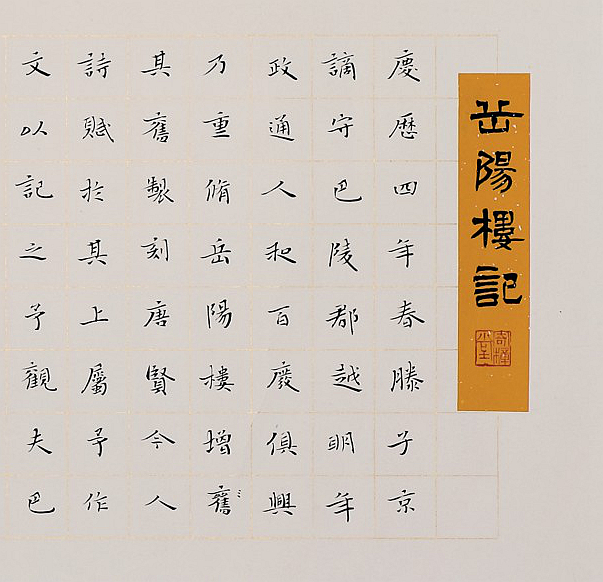 岳陽樓記
慶歷四年春滕子京
謫守巴陵郡越明年
政通人和百廢俱興
乃重脩岳陽樓增舊
其舊製刻唐賢今人
詩賦於其上屬予作
文以記之予觀夫巴